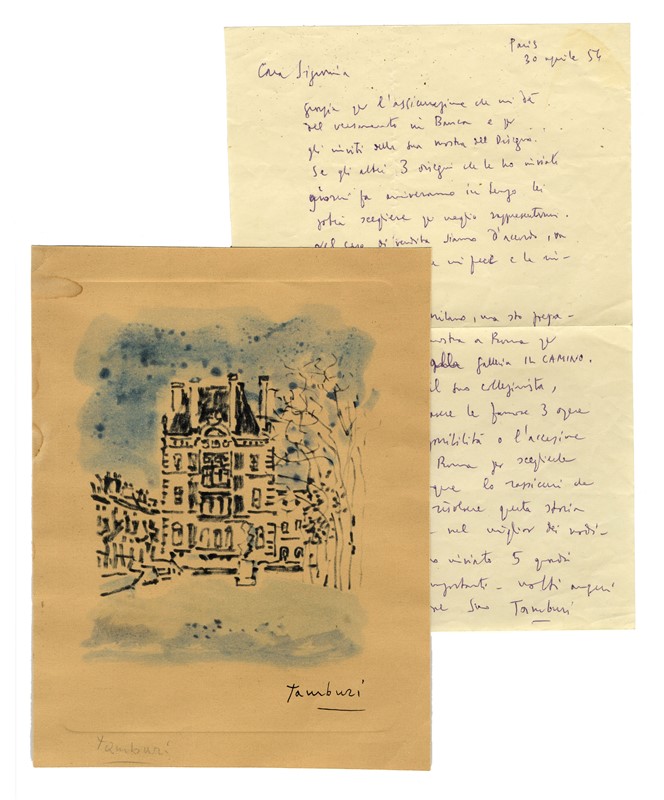 Paris
30 aprile 54
Cara Signorina
grazie per l'assicurazione che mi dà
del versamento in Banca e per
gli inviti della sua mostra del Disegno.
Se gli altri 3 disegni che le ho inviati
giorni fa arriveranno in tempo lei
potrà scegliere per meglio rappresentarmi.
nel caso di vendita siamo d'accordo,
e la mi-
milano, ma sto prepa-
mostra a Roma per
galleria IL CAMINO.
il suo collezionista,
avere le famose 3 opere
o l'accasione
Roma per scegliere
lo rassicuri che
risolvere questa storia
nel miglior dei modi-
inviato 5 quadri
importanti - molti auguri
Suo Tamburi
Tamburi
Tamburi